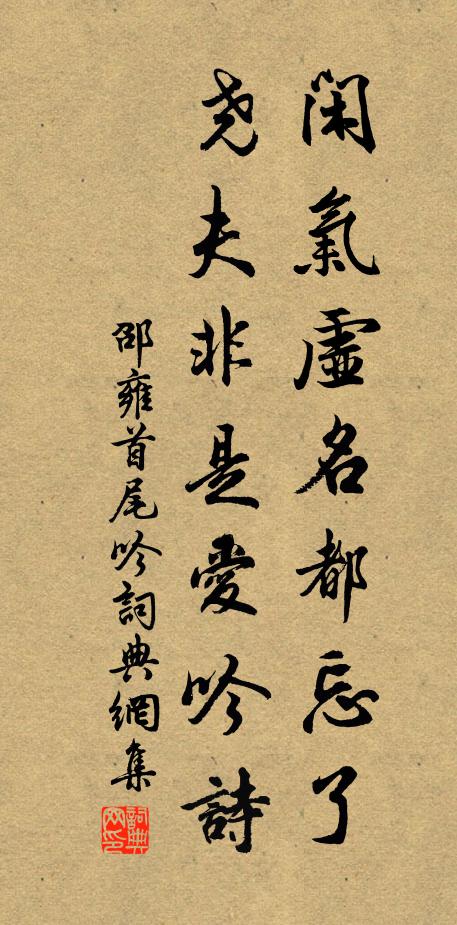 閑氣虛名都忘了
尧夫非是愛吟詩
邵雍首尾吟詞典網集
詞典
网印